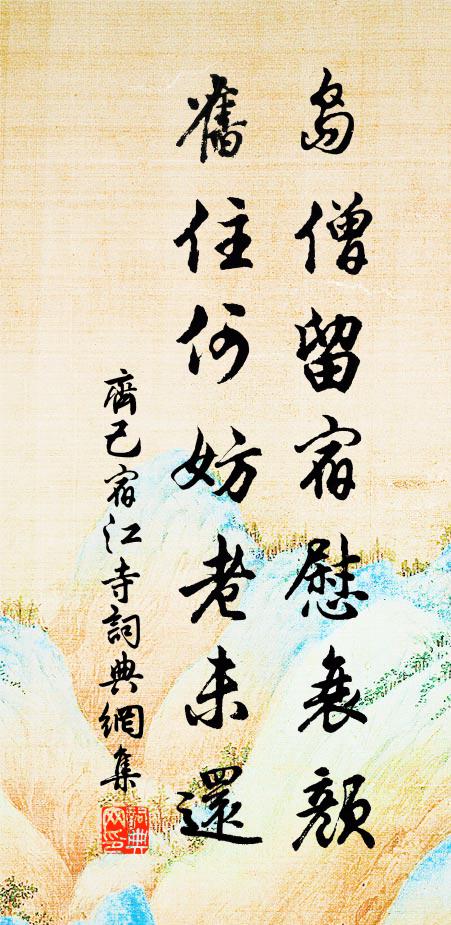 島僧留宿慰衰顏
舊住何妨老未還
齊己宿江寺詞典網集
詞典網印